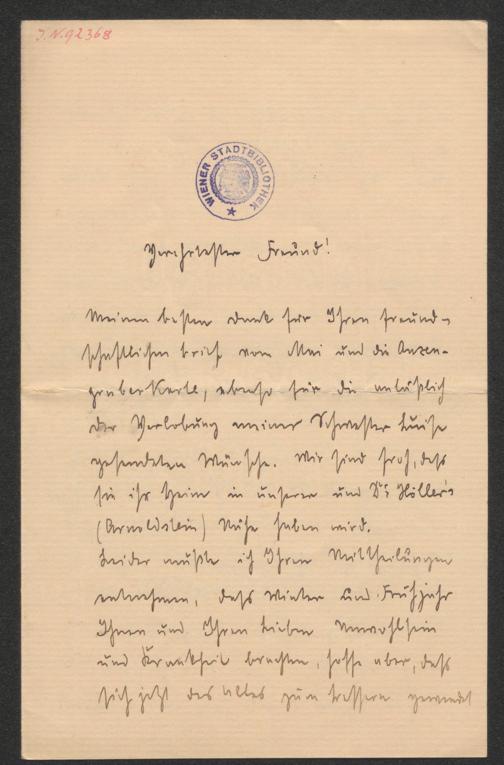 J.N.92368
WIENER STADTBIBLIOTHEK
Verehrtester Freund!
Meinen besten Dank für Ihren freund-
schaftlichen Brief vom Mai und die Anzen-
gruber Karte, ebenso für die anläßlich
der Verlobung meiner Schwester Luise
gesendeten Wünsche. Wir sind froh, daß
sie ihr Heim in unserer und Dr. Höller's
(Arnoldstein) Nähe haben wird.
Leider mußte ich Ihren Mittheilungen
entnehmen, daß Winter und Frühjahr
Ihnen und Ihren Lieben Unwohlsein
und Krankheit brachten, hoffe aber, daß
sich jetzt das alles zum bessern gewendet